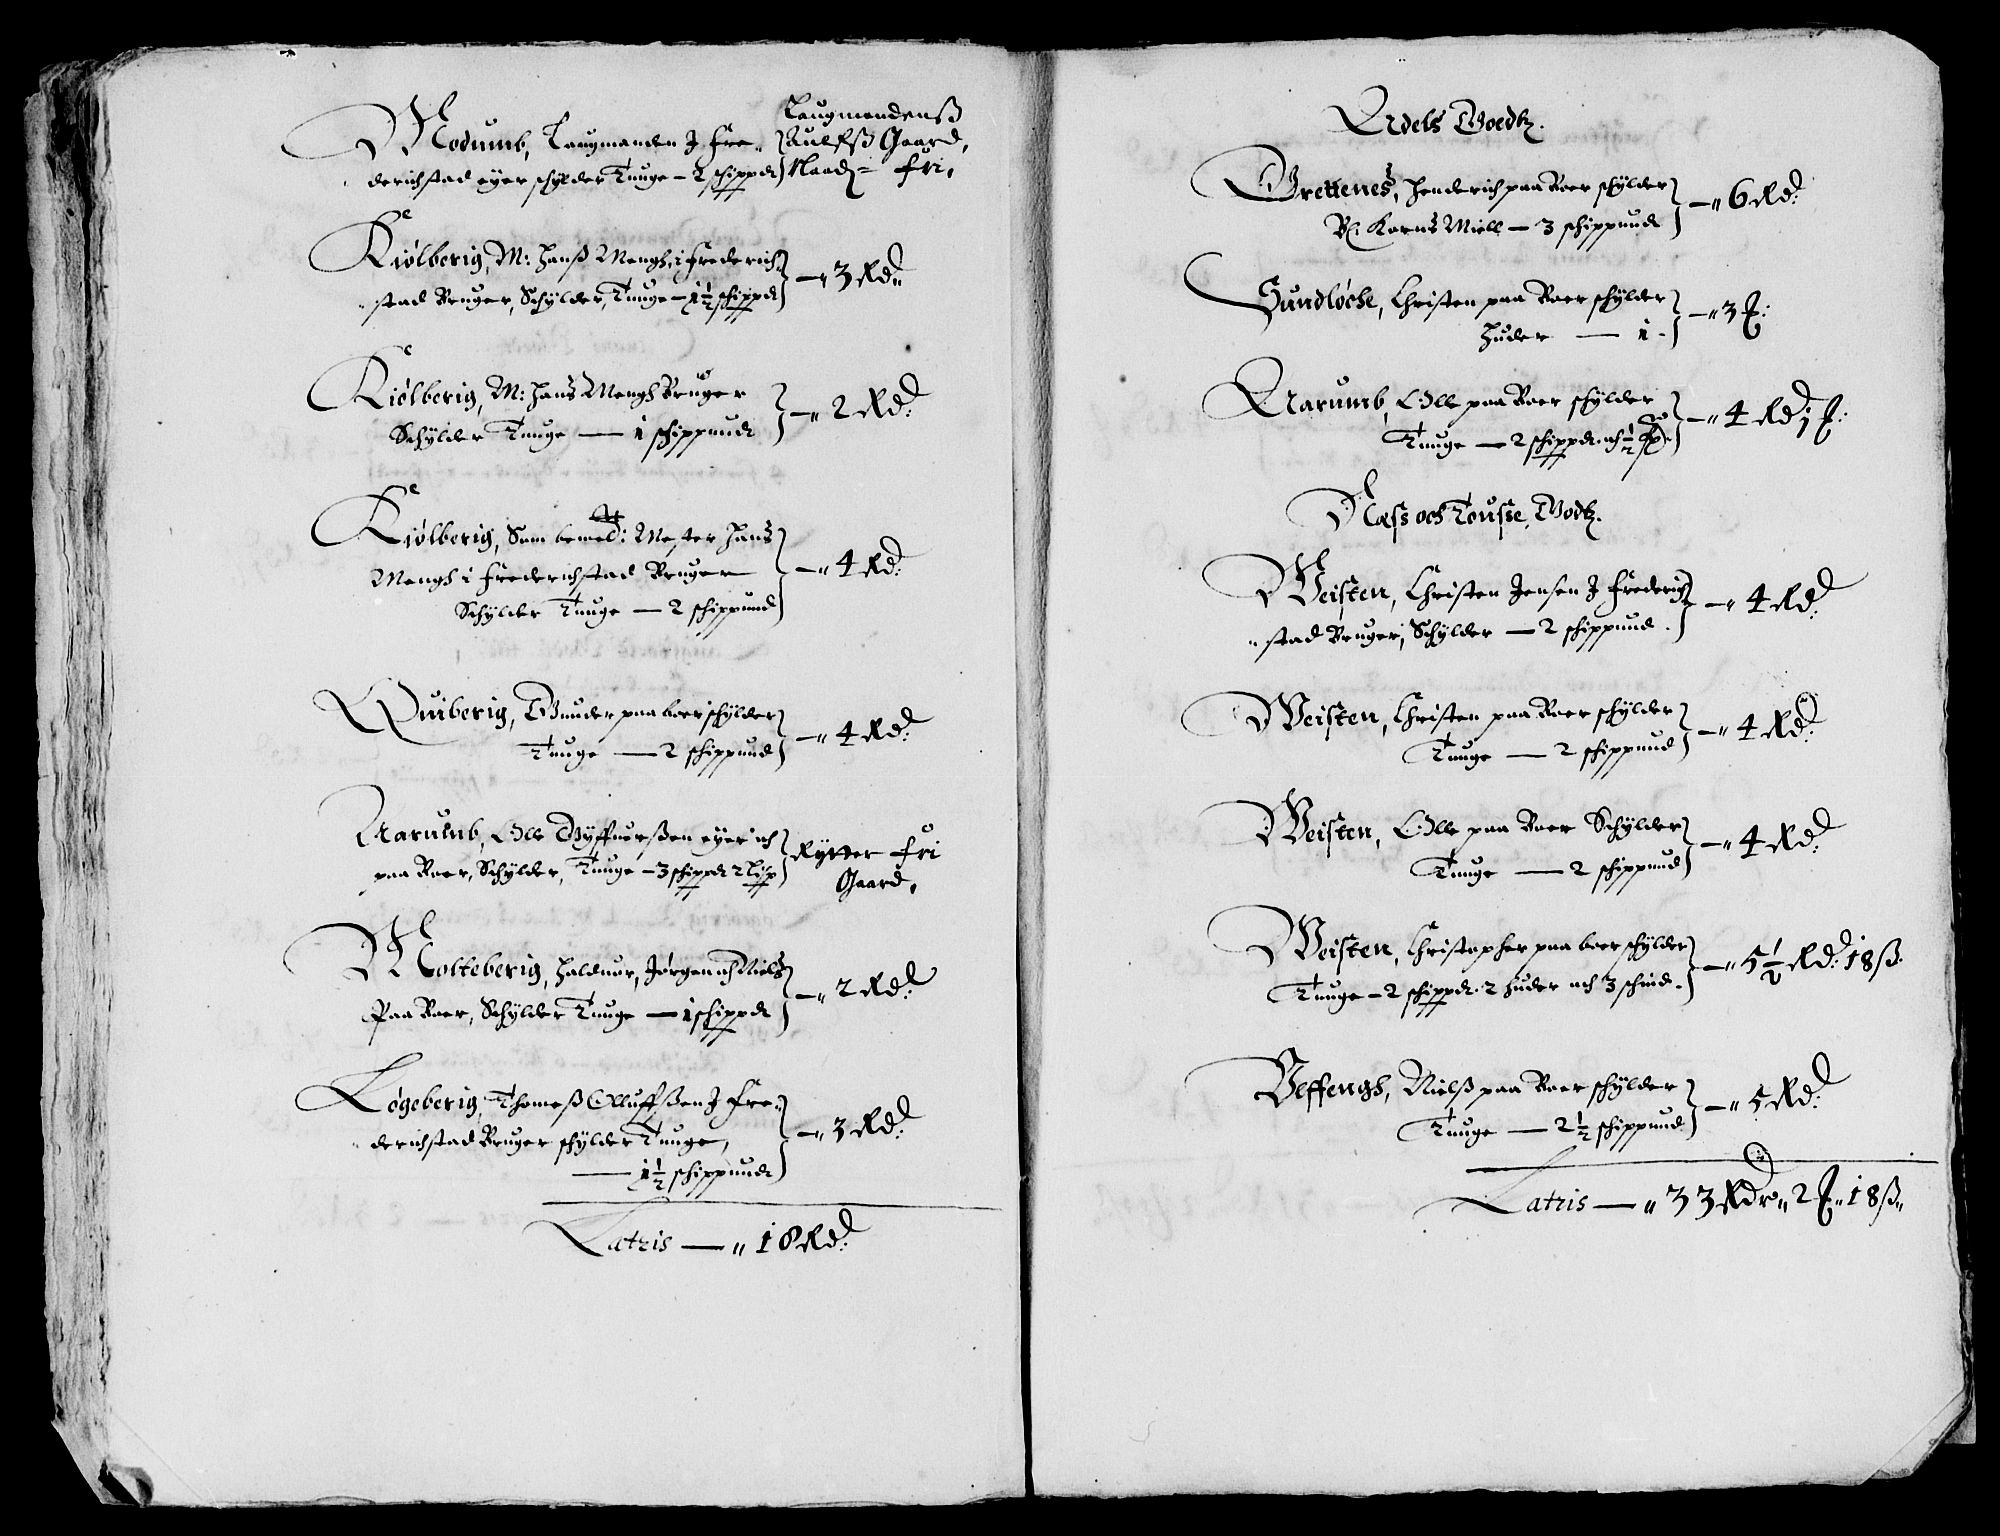 Modumb, Laugmanden J Fre-
derichstad eyer schylder Tunge - 2 schippd
Laugmandenß
Gaard,
fri,
Kiølberig, M: Hanß Mengh, i Frederich-
stad Bruger, Schylder, Tunge - 1½ schippd
- 3 Rd:
Kiølberig, M: Hans Mengh Bruger
Schylder Tunge — 1 schippund
- 2 Rd:
Kiølberig, Som bemed: Mester Hans
Mengh i Frederichstad Bruger
Schylder Tunge — 2 schippund
- 4 Rd:
Quiberig, Gunder paa boer schylder
Tunge — 2 schippund
- 4 Rd:
Aarumb, Olle eyer och
paa Boer, Schylder, Tunge - 3 schippd 2 lispd
Rytter fri
Gaard,
Molteberig, Halduor, Jørgen och Niels
Paa Boer, Schylder Tunge — 1 schippd
- 2 Rd:
Løgeberig, Thomeß Olluffßen J Fre-
derichstad Bruger schylder Tunge,
— 1½ schippund
- 3 Rd:
Latris — 18 Rd:
Erdels Goedtz.
Grettenes, Henderich paa Boer schylder
Korns Miell — 3 schippund
- 6 Rd:
Sundløche, Christen paa Boer schylder
Huder — 1
- 3 F:
Aarumb, Olle paa Boer schylder
Tunge — 2 schippd. och ½
- 4 Rd 1 F:
Næss och Tousse, Godtz.
Weisten, Christen Jensen J Frederich
stad Bruger, Schylder — 2 schippund.
- 4 Rd:
Weisten, Christen paa Boer schylder
Tunge — 2 schippund
- 4 Rd:
Weisten, Olle paa Boer Schylder
Tunge — 2 schippund
- 4 Rd:
Weisten, Christopher paa boer schylder
Tunge - 2 schippd. 2 huder och 3 schind.
- 5½ Rd: 18 ß.
Veffengh, Nielß paa Boer schylder
Tunge — 2½ schippund
- 5 Rd:
Latris — 33 Rdr 2 F 18 ß